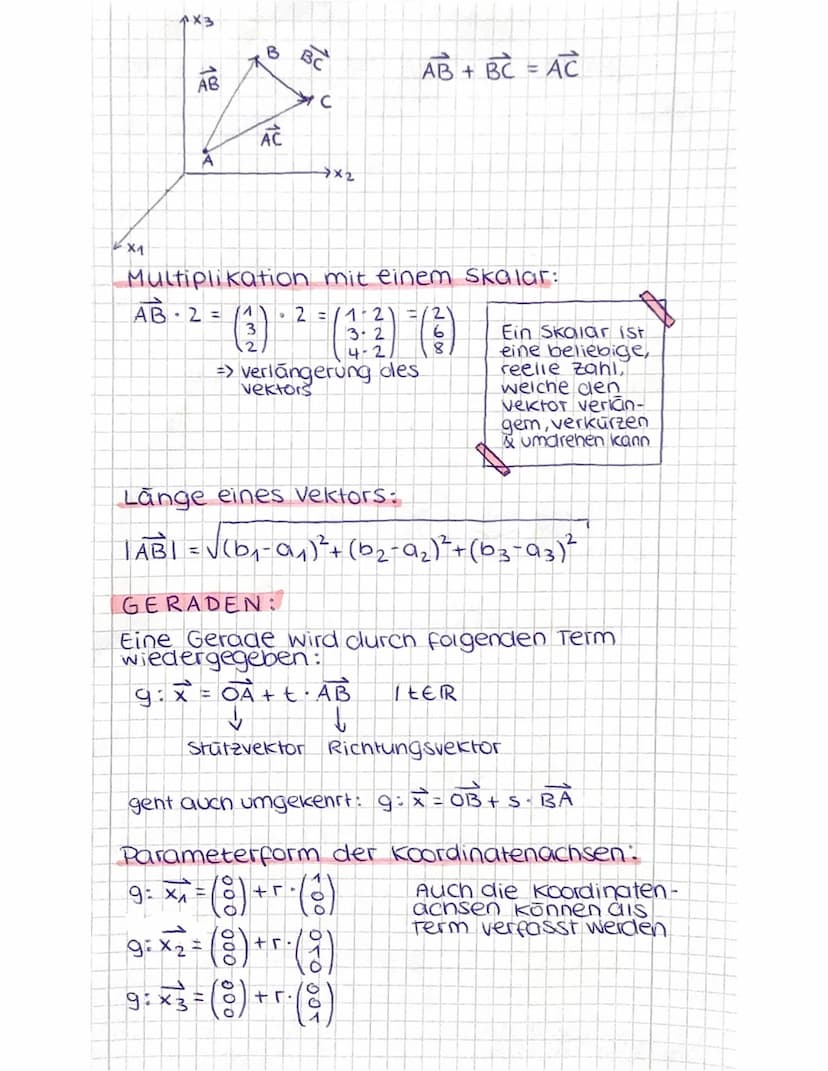 x3
B
BC
AB
AB + BC = AC
C
AC
A
x2
x1
Multiplikation mit einem Skalar:
AB · 2 = (1 3 2) · 2 = (1·2 3·2 4·2) = (2 6 8)
=> verlängerung des
vektors
Ein Skalar ist
eine beliebige,
reelle Zahl,
welche den
vektor verlän-
gern, verkürzen
& umdrehen kann
Länge eines Vektors:
|AB| = √(b1-a1)²+(b2-a2)²+(b3-a3)²
GERADEN:
Eine Gerade wird durch folgenden Term
wiedergegeben:
g: x = OA + t · AB | t∈ℝ
↓ ↓
Stützvektor Richtungsvektor
geht auch umgekehrt: g: x = OB + s · BA
Parameterform der Koordinatenachsen:
g: x1 = (0 0 0) + r · (1 0 0)
Auch die Koordinaten-
achsen können als
Term verfasst werden
g: x2 = (0 0 0) + r · (0 1 0)
g: x3 = (0 0 0) + r · (0 0 1)